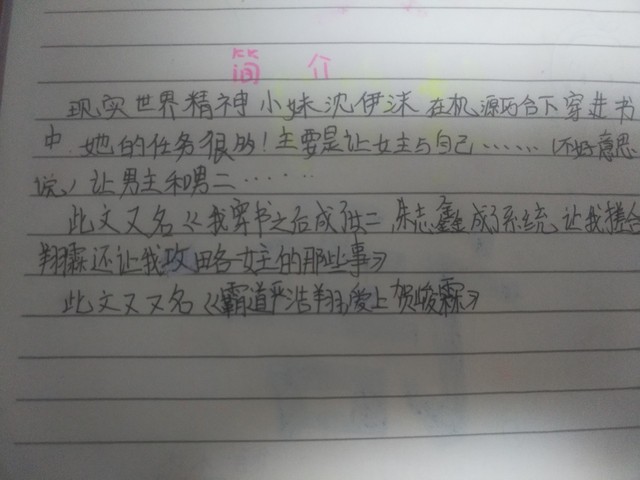 简介
现实世界精神小妹沈伊沫在机源巧合下穿进书
中 她的任务很多!主要是让女主与自己……(不好意思
说)让男主和男二……
此文又名《我穿书之后成了女二,朱志鑫成了系统,让我搓合
翔霖还让我攻略女主的那些事》
此文又又名《霸道严浩翔爱上贺峻霖》